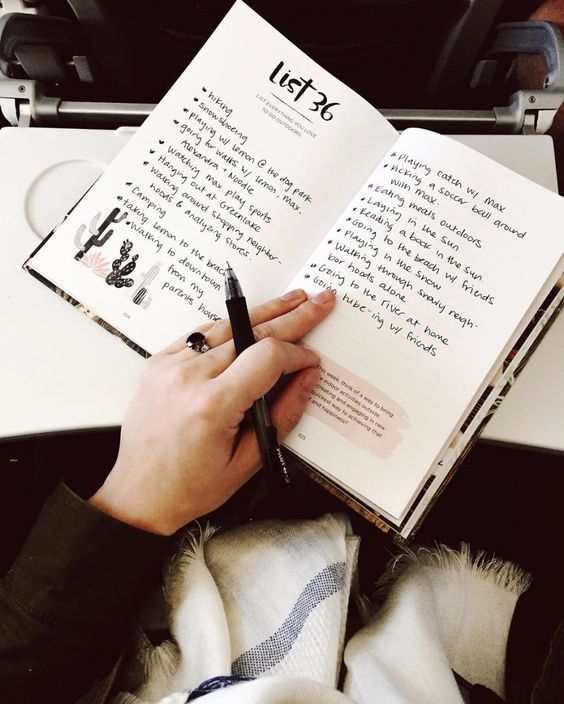 List 36
LIST EVERYTHING YOU LOVE
TO DO OUTDOORS.
hiking
snowshoeing
playing w/ lemon @ the dog park
going for walks w/ lemon, max,
Alexandra + Noodle
Watching max play sports
Hanging out at Greenlake
Walking around shopping neighbor-
hoods & analyzing stores.
Camping
Taking lemon to the beach
Walking to downtown
from my
parents house
104
Playing catch w/ max
Kicking a soccer ball around
with max.
Eating meals outdoors
Laying in the sun
Reading a book in the sun
Going to the beach w/ friends
Playing in the snow
Walking through snowy neigh-
bor hoods alone
Going to the river at home
Going tube-ing w/ friends
This week, think of a way to bring
indoor activities outside.
creating and engaging in new
quickest way to achieving that
and happiness?
105